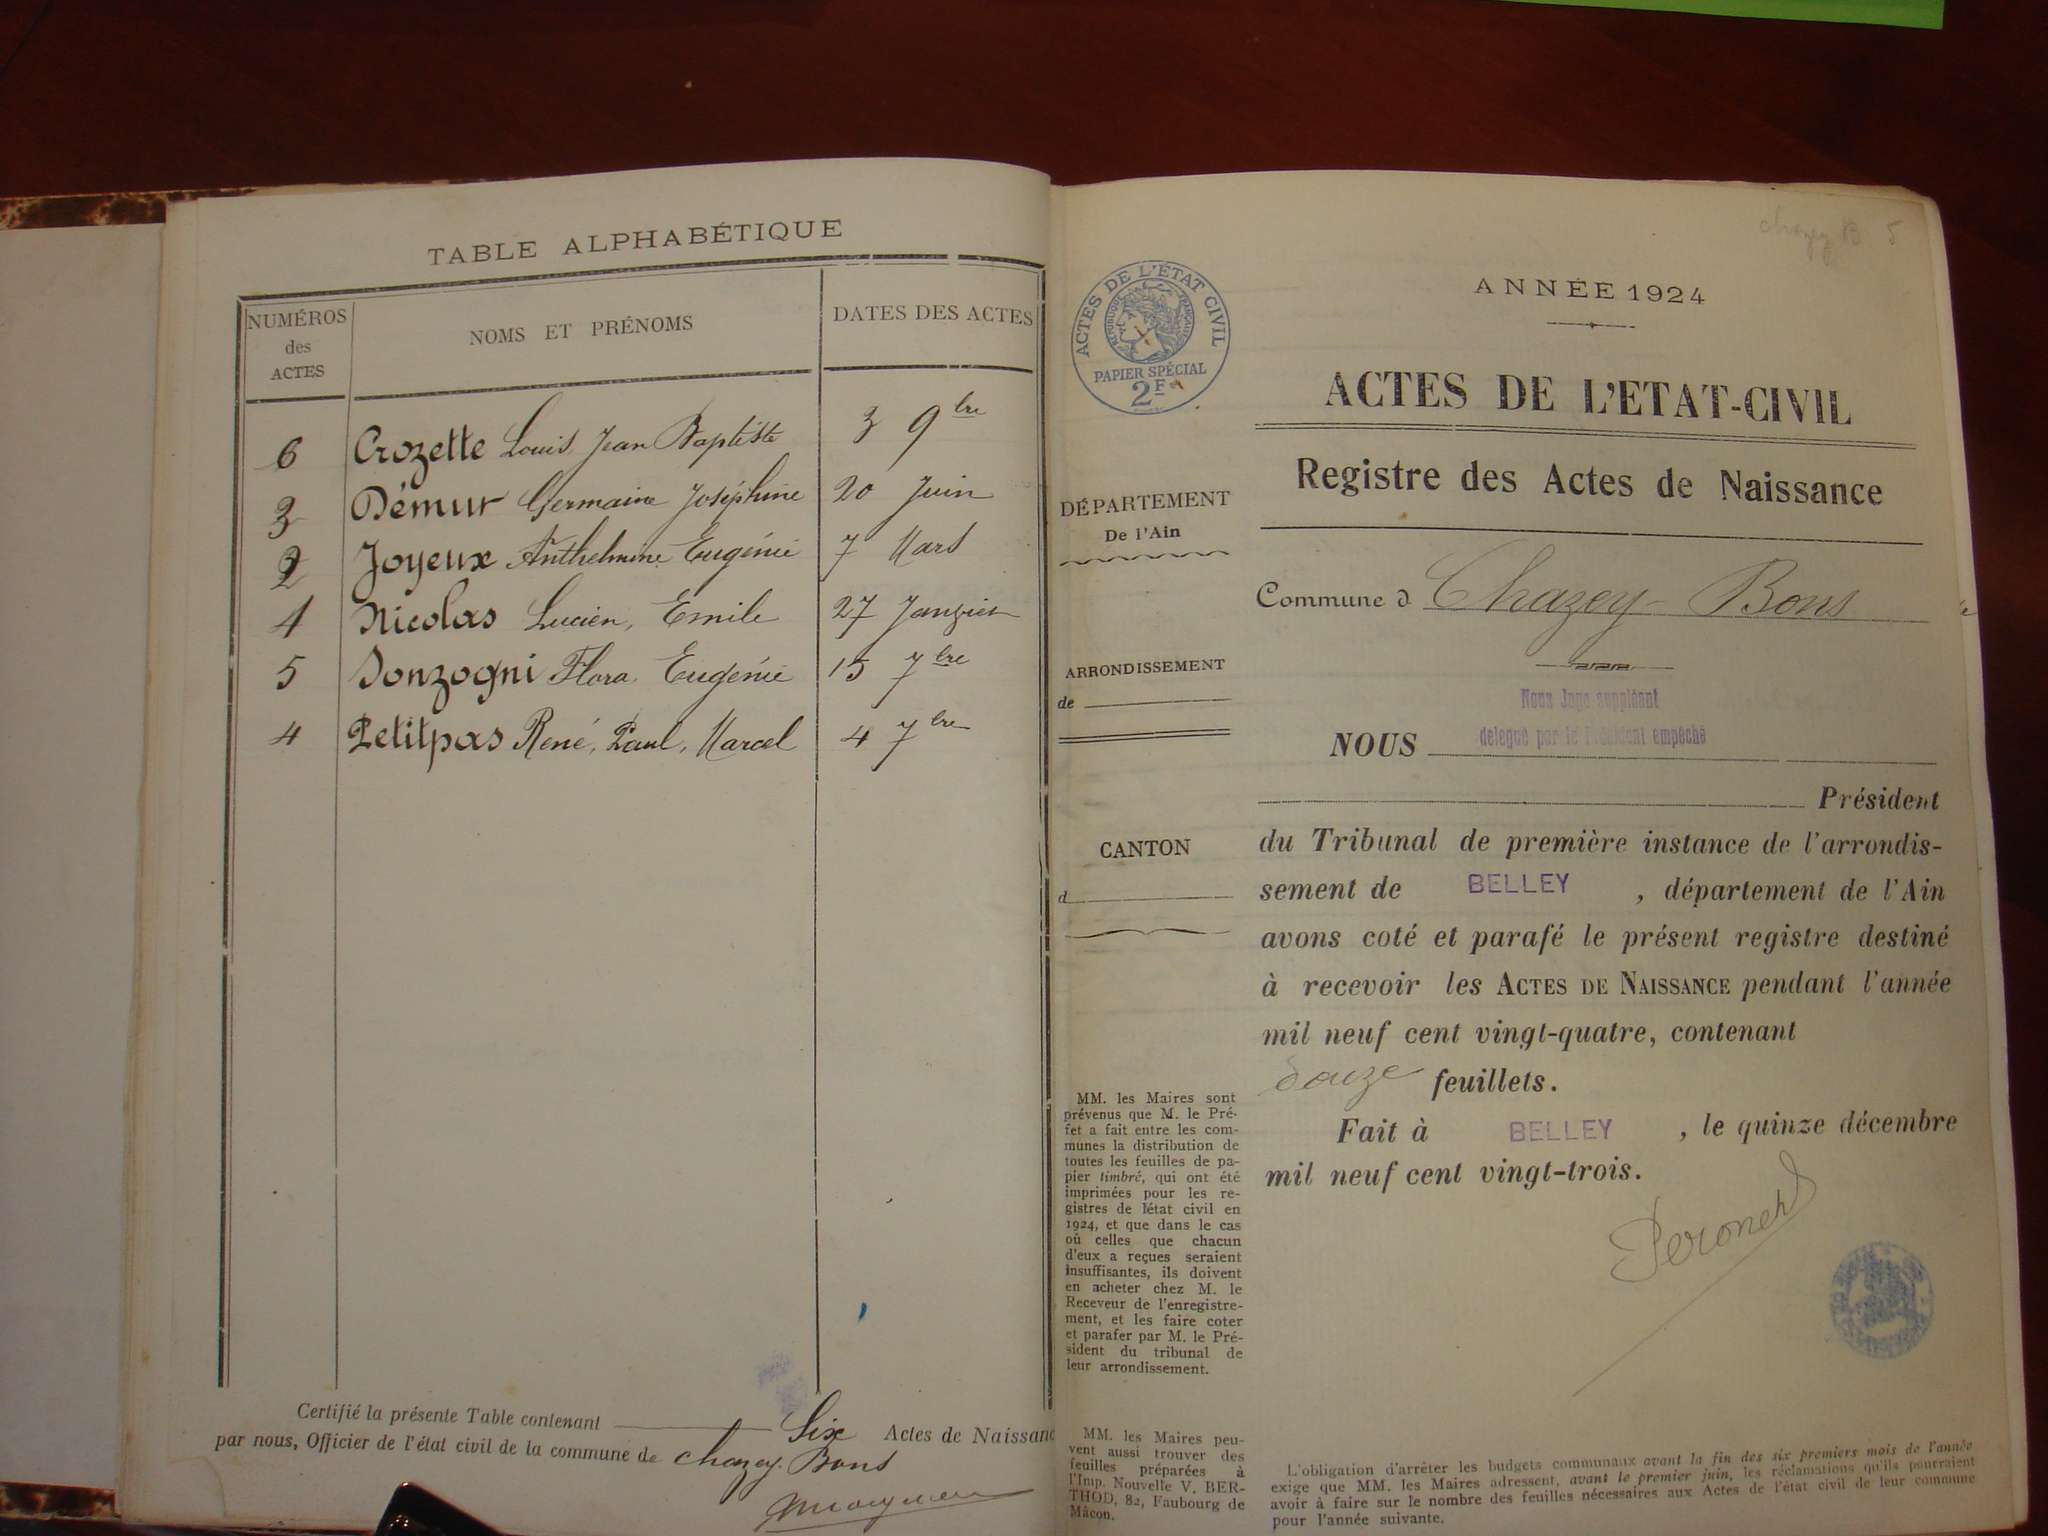 TABLE ALPHABÉTIQUE
NUMÉROS des ACTES
NOMS ET PRÉNOMS
DATES DES ACTES
6 Crozette Louis Jean Baptiste 3 9bre
3 Démur Germaine Joséphine 20 Juin
2 Joyeux Anthelmine Eugénie 7 Mars
1 Nicolas Lucien, Emile 27 Janvier
5 Sonzogni Flora Eugénie 15 7bre
4 Petitpas René, Paul, Marcel 4 7bre
Certifié la présente Table contenant Six Actes de Naissanc
par nous, Officier de l'état civil de la commune de Chazey Bons
Chazey B 5
ANNÉE 1924
ACTES DE L'ÉTAT CIVIL
RÉPUBLIQUE FRANÇAISE
PAPIER SPÉCIAL
2F
ACTES DE L'ETAT-CIVIL
Registre des Actes de Naissance
DÉPARTEMENT
De l'Ain
Commune d Chazey-Bons
ARRONDISSEMENT
de
CANTON
d
Nous Juge suppléant
délégué par le Président empêché
NOUS
Président
du Tribunal de première instance de l'arrondis-
sement de BELLEY, département de l'Ain
avons coté et parafé le présent registre destiné
à recevoir les ACTES DE NAISSANCE pendant l'année
mil neuf cent vingt-quatre, contenant
douze feuillets.
Fait à BELLEY, le quinze décembre
mil neuf cent vingt-trois.
MM. les Maires sont
prévenus que M. le Pré-
fet a fait entre les com-
munes la distribution de
toutes les feuilles de pa-
pier timbré, qui ont été
imprimées pour les re-
gistres de l'état civil en
1924, et que dans le cas
où celles que chacun
d'eux a reçues seraient
insuffisantes, ils doivent
en acheter chez M. le
Receveur de l'enregistre-
ment, et les faire coter
et parafer par M. le Pré-
sident du tribunal de
leur arrondissement.
MM. les Maires peu-
vent aussi trouver des
feuilles préparées à
l'Imp. Nouvelle V. BER-
THOD, 82, Faubourg de
Mâcon.
L'obligation d'arrêter les budgets communaux avant la fin des six premiers mois de l'année
exige que MM. les Maires adressent, avant le premier juin, les réclamations qu'ils pourraient
avoir à faire sur le nombre des feuilles nécessaires aux Actes de l'état civil de leur commune
pour l'année suivante.